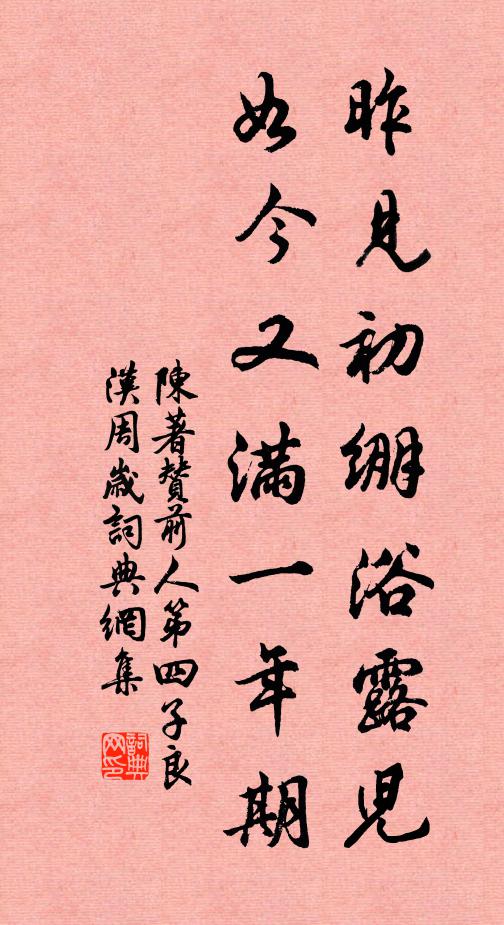 昨見初繃浴露兒
如今又滿一年期
陳著贊前人第四子良
漢周歲詞典網集
詞典網印